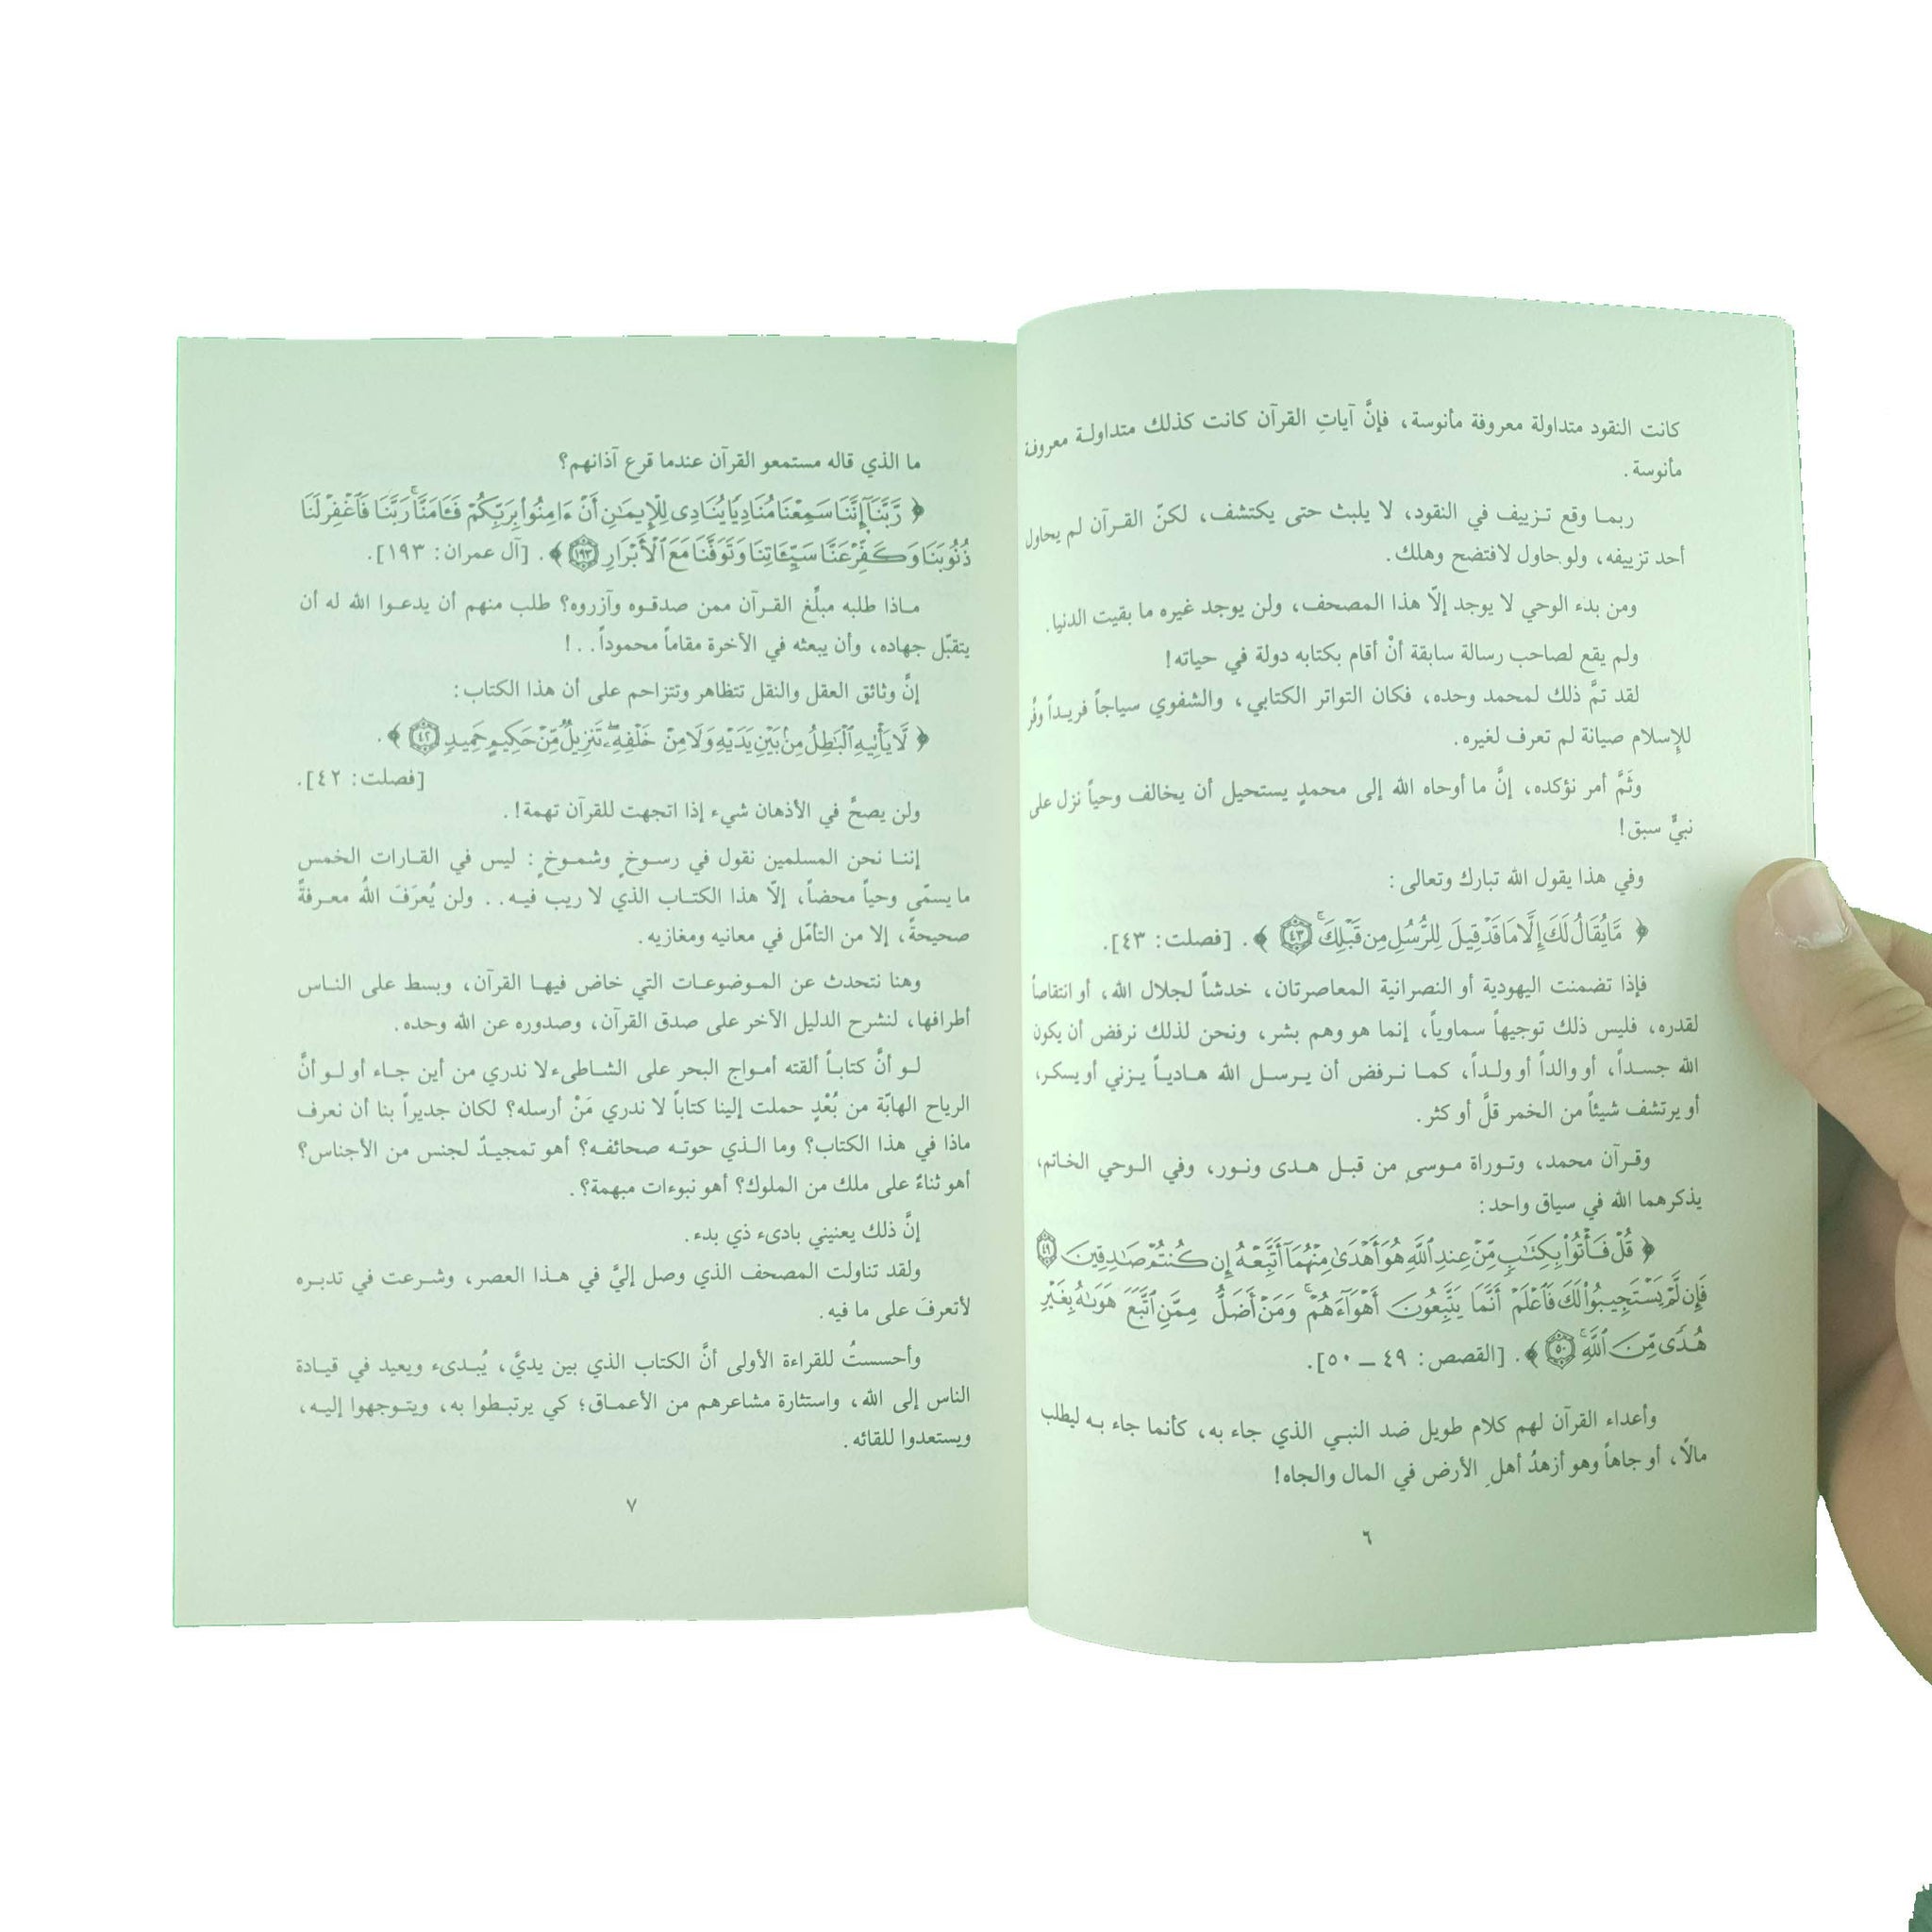 كانت النقود متداولة معروفة مأنوسة، فإنَّ آياتِ القرآن كانت كذلك متداولـة معروفـة
مأنوسة.
ربمـا وقع تـزييف في النقود، لا يلبث حتى يكتشف، لكنّ القـرآن لم يحاول
أحد تزييفه، ولو حاول لافتضح وهلك.
ومن بدء الوحي لا يوجد إلّا هذا المصحف، ولن يوجد غيره ما بقيت الدنيا.
ولم يقع لصاحب رسالة سابقة أنْ أقام بكتابه دولة في حياته!
لقد تمَّ ذلك لمحمد وحده، فكان التواتر الكتابي، والشفوي سياجاً فريـداً وفَّر
للإسلام صيانة لم تعرف لغيره.
وثَمَّ أمر نؤكده، إنَّ ما أوحاه الله إلى محمدٍ يستحيل أن يخالف وحياً نزل على
نبيٍّ سبق!
وفي هذا يقول الله تبارك وتعالى:
﴿ مَّا يُقَالُ لَكَ إِلَّا مَا قَدْ قِيلَ لِلرُّسُلِ مِن قَبْلِكَ ۚ ٤٣ ﴾. [فصلت: ٤٣].
فإذا تضمنت اليهودية أو النصرانية المعاصرتان، خدشاً لجلال الله، أو انتقاصاً
لقدره، فليس ذلك توجيهاً سماوياً، إنما هو وهم بشر، ونحن لذلك نرفض أن يكون
الله جسـداً، أو والداً أو ولـداً، كمـا نـرفض أن يـرسـل الله هـاديـاً يـزني أو يسكـر،
أو يرتشف شيئاً من الخمر قلَّ أو كثر.
وقـرآن محمد، وتـوراة مـوسى من قبـل هـدى ونـور، وفي الـوحي الخـاتم،
يذكرهما الله في سياق واحد:
﴿ قُلْ فَأْتُوا۟ بِكِتَٰبٍ مِّنْ عِندِ ٱللَّهِ هُوَ أَهْدَىٰ مِنْهُمَآ أَتَّبِعْهُ إِن كُنتُمْ صَٰدِقِينَ ٤٩
فَإِن لَّمْ يَسْتَجِيبُوا۟ لَكَ فَٱعْلَمْ أَنَّمَا يَتَّبِعُونَ أَهْوَآءَهُمْ ۚ وَمَنْ أَضَلُّ مِمَّنِ ٱتَّبَعَ هَوَىٰهُ بِغَيْرِ
هُدًى مِّنَ ٱللَّهِ ۚ ٥٠ ﴾. [القصص: ٤٩ ــ ٥٠].
وأعداء القرآن لهم كلام طويل ضد النبـي الذي جاء به، كأنما جاء بـه ليطلب
مالًا، أو جاهاً وهو أزهدُ أهلِ الأرض في المال والجاه!
٦
ما الذي قاله مستمعو القرآن عندما قرع آذانهم؟
﴿ رَّبَّنَآ إِنَّنَا سَمِعْنَا مُنَادِيًا يُنَادِى لِلْإِيمَٰنِ أَنْ ءَامِنُوا۟ بِرَبِّكُمْ فَـَٔامَنَّا ۚ رَبَّنَا فَٱغْفِرْ لَنَا
ذُنُوبَنَا وَكَفِّرْ عَنَّا سَيِّـَٔاتِنَا وَتَوَفَّنَا مَعَ ٱلْأَبْرَارِ ١٩٣ ﴾. [آل عمران: ١٩٣].
مـاذا طلبه مبلِّغ القـرآن ممن صدقـوه وآزروه؟ طلب منهم أن يدعـوا الله له أن
يتقبّل جهاده، وأن يبعثه في الآخرة مقاماً محموداً..!
إنَّ وثائق العقل والنقل تتظاهر وتتزاحم على أن هذا الكتاب:
﴿ لَّا يَأْتِيهِ ٱلْبَٰطِلُ مِنۢ بَيْنِ يَدَيْهِ وَلَا مِنْ خَلْفِهِۦ ۖ تَنزِيلٌ مِّنْ حَكِيمٍ حَمِيدٍ ٤٢ ﴾.
[فصلت: ٤٢].
ولن يصحَّ في الأذهان شيء إذا اتجهت للقرآن تهمة!.
إننـا نحن المسلمين نقول في رسـوخٍ وشمـوخٍ: ليس في القـارات الخمس
ما يسمّى وحياً محضاً، إلّا هذا الكتـاب الذي لا ريب فيـه.. ولن يُعرَفَ اللهُ معـرفةً
صحيحةً، إلا من التأمّل في معانيه ومغازيه.
وهنا نتحدث عن المـوضوعـات التي خاض فيهـا القرآن، وبسط على النـاس
أطرافها، لنشرح الدليل الآخر على صدق القرآن، وصدوره عن الله وحده.
لـو أنَّ كتابـاً ألقته أمـواج البحر على الشـاطىء لا ندري من أين جـاء أو لـو أنَّ
الرياح الهابّة من بُعْدٍ حملت إلينا كتاباً لا ندري مَنْ أرسله؟ لكان جديراً بنا أن نعرف
ماذا في هذا الكتاب؟ وما الـذي حوتـه صحائفـه؟ أهو تمجيـدٌ لجنس من الأجناس؟
أهو ثناءً على ملك من الملوك؟ أهو نبوءات مبهمة؟.
إنَّ ذلك يعنيني بادىء ذي بدء.
ولقد تناولت المصحف الذي وصل إليَّ في هـذا العصر، وشـرعت في تدبـره
لأتعرفَ على ما فيه.
وأحسستُ للقراءة الأولى أنَّ الكتاب الذي بين يديَّ، يُبـدىء ويعيد في قيـادة
الناس إلى الله، واستثارة مشاعرهم من الأعمـاق؛ كي يرتبـطوا به، ويتـوجهوا إليـه،
ويستعدوا للقائه.
٧